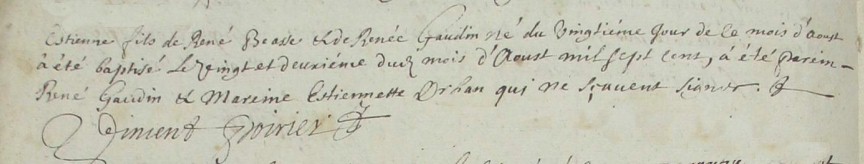 Estienne fils de René Beasse & de Renée Gaudin né du vingtiéme jour de ce mois d'Aoust
à été baptisé le vingt et deuxiéme dud mois d'Aoust mil sept cent, à été parein
René Gaudin & Mareine Estiennette Orhan qui ne sçavent signer.
Poirier